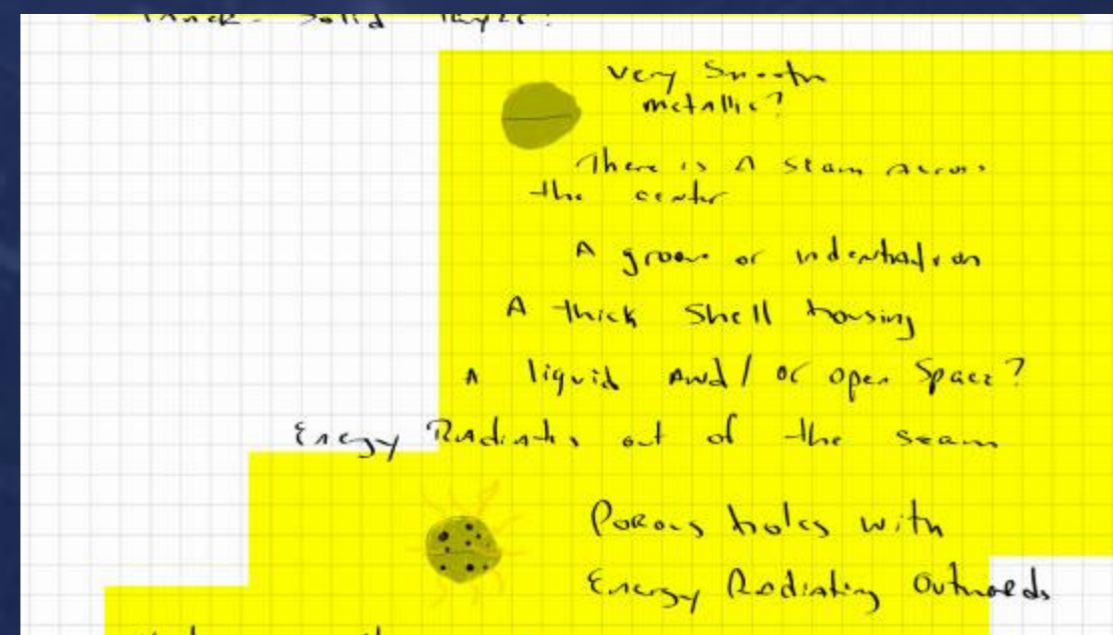 Thick - Solid layer?
Very Smooth
metallic?
There is A seam Across
the center
A groove or indentation
A thick Shell housing
A liquid And / or open Space?
Energy Radiates out of the seam
Porous holes with
Energy Radiating Outwards